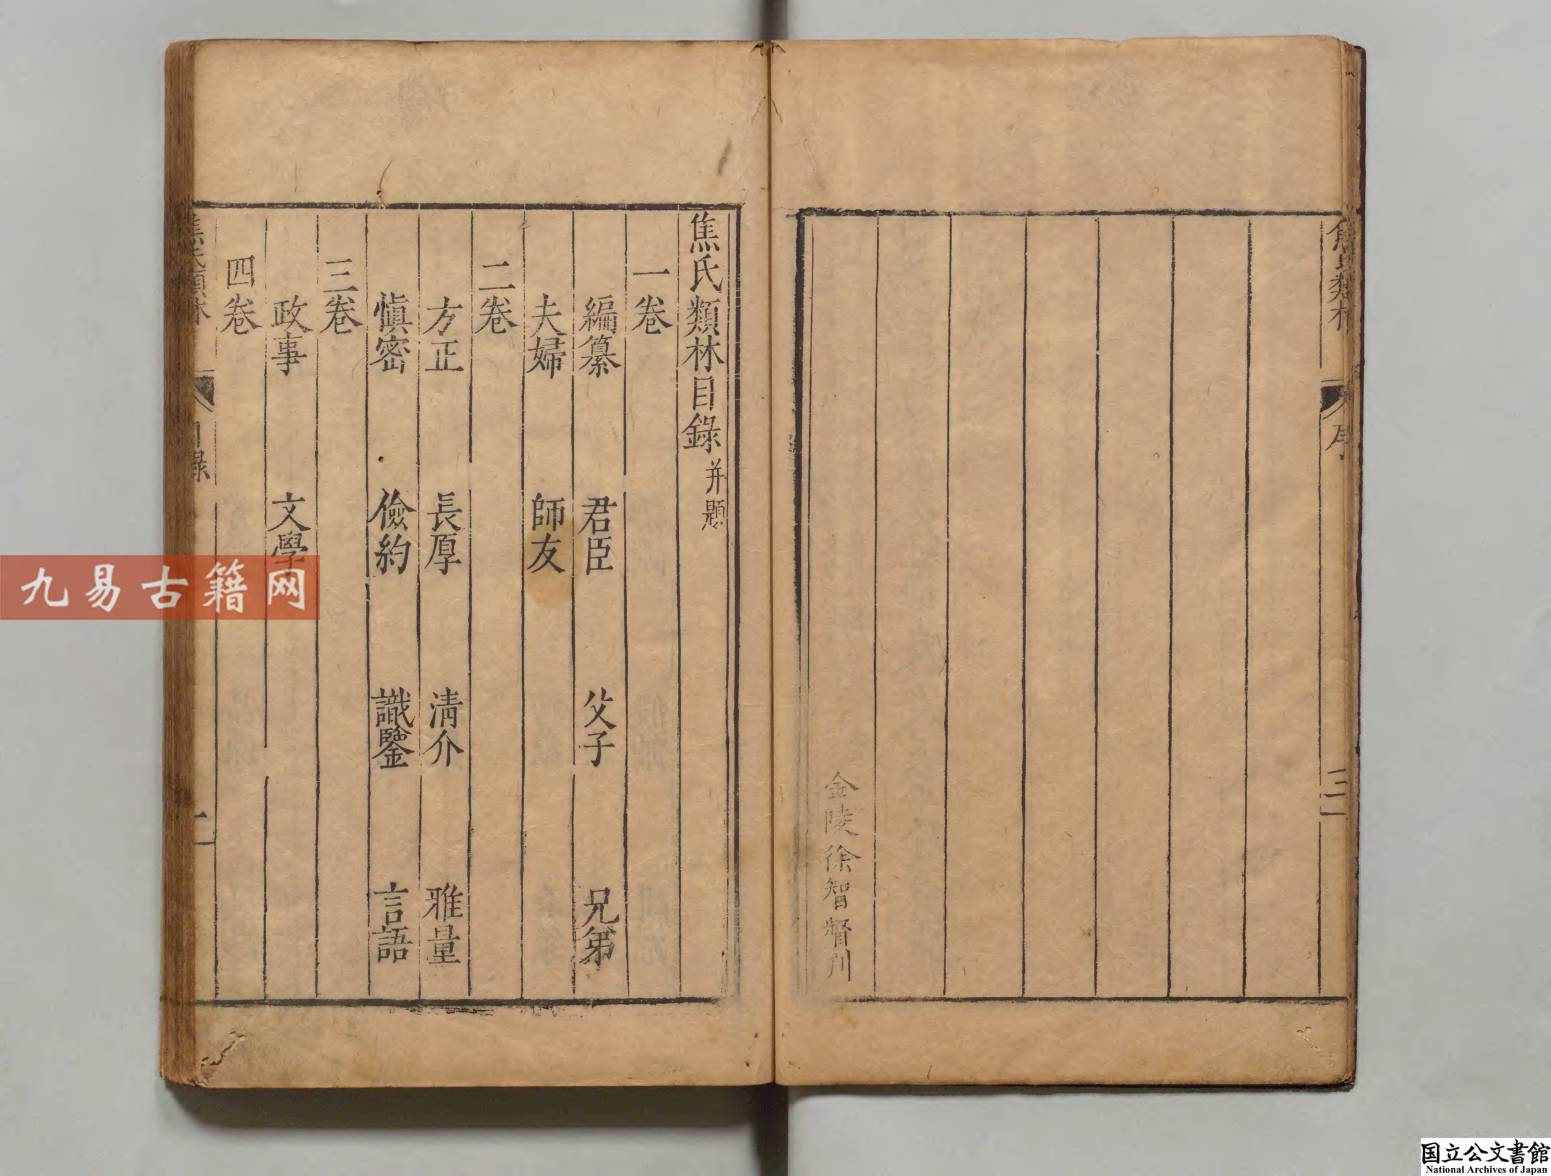 焦氏類林
序
三
金陵徐智督刊
焦氏類林目錄 并題
一卷
編纂 君臣 父子 兄弟
夫婦 師友
二卷
方正 長厚 清介 雅量
慎密 儉約 識鑒 言語
三卷
政事 文學
四卷
焦氏類林
目錄
一
九易古籍网
国立公文書館
National Archives of Japan